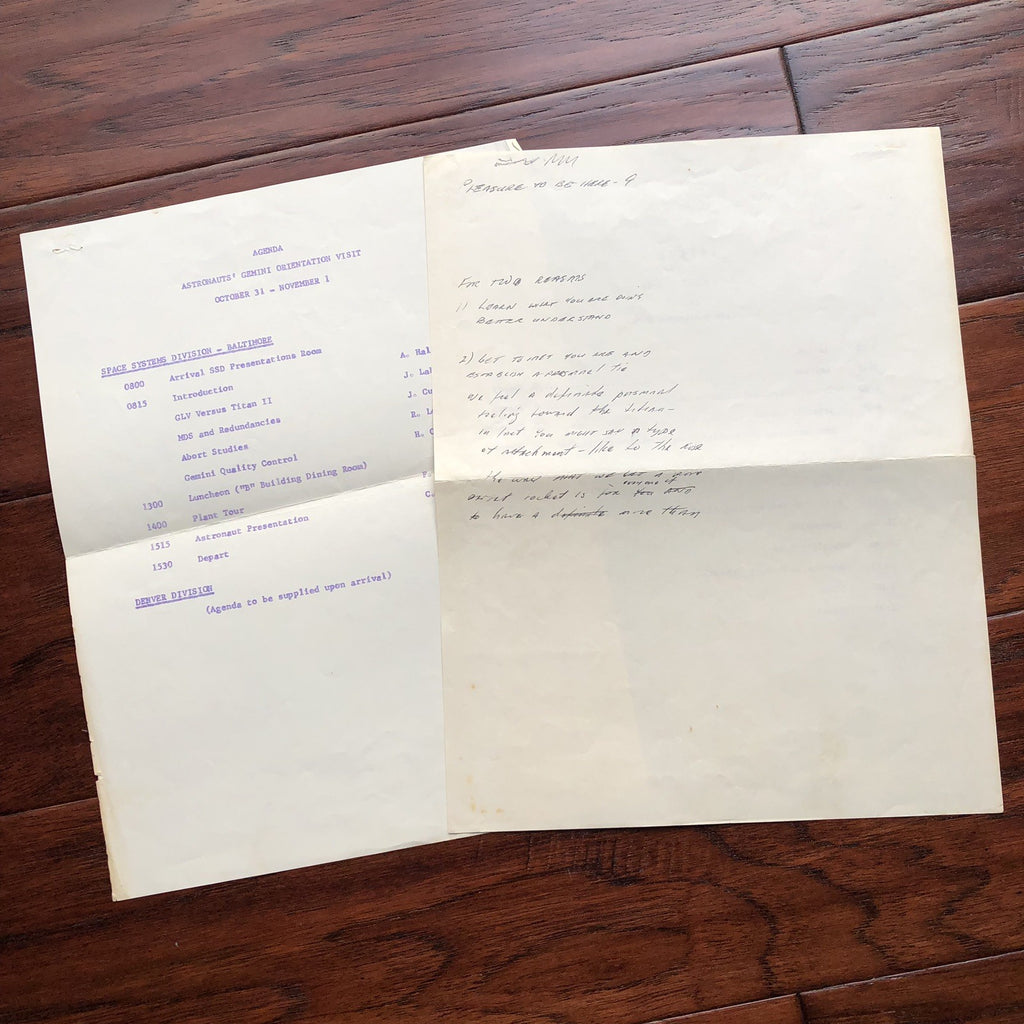 AGENDA
ASTRONAUTS' GEMINI ORIENTATION VISIT
OCTOBER 31 - NOVEMBER 1
SPACE SYSTEMS DIVISION - BALTIMORE
0800 Arrival SSD Presentations Room A. Hal
0815 Introduction J. Lal
GLV Versus Titan II J. Cu
MDS and Redundancies R. L
Abort Studies H. G
Gemini Quality Control
1300 Luncheon ("B" Building Dining Room)
1400 Plant Tour
1515 Astronaut Presentation
1530 Depart
DENVER DIVISION
(Agenda to be supplied upon arrival)
PLEASURE TO BE HERE - 9
FOR TWO REASONS
1) LEARN WHAT YOU ARE DOING
BETTER UNDERSTAND
2) LET YOU ARE AND
ESTABLISH A PERSONAL TIE
We feel a definite personal
feeling toward the Titan -
in fact you MIGHT SAY A type
of attachment - like to the
rocket is for you
to have a definite more than